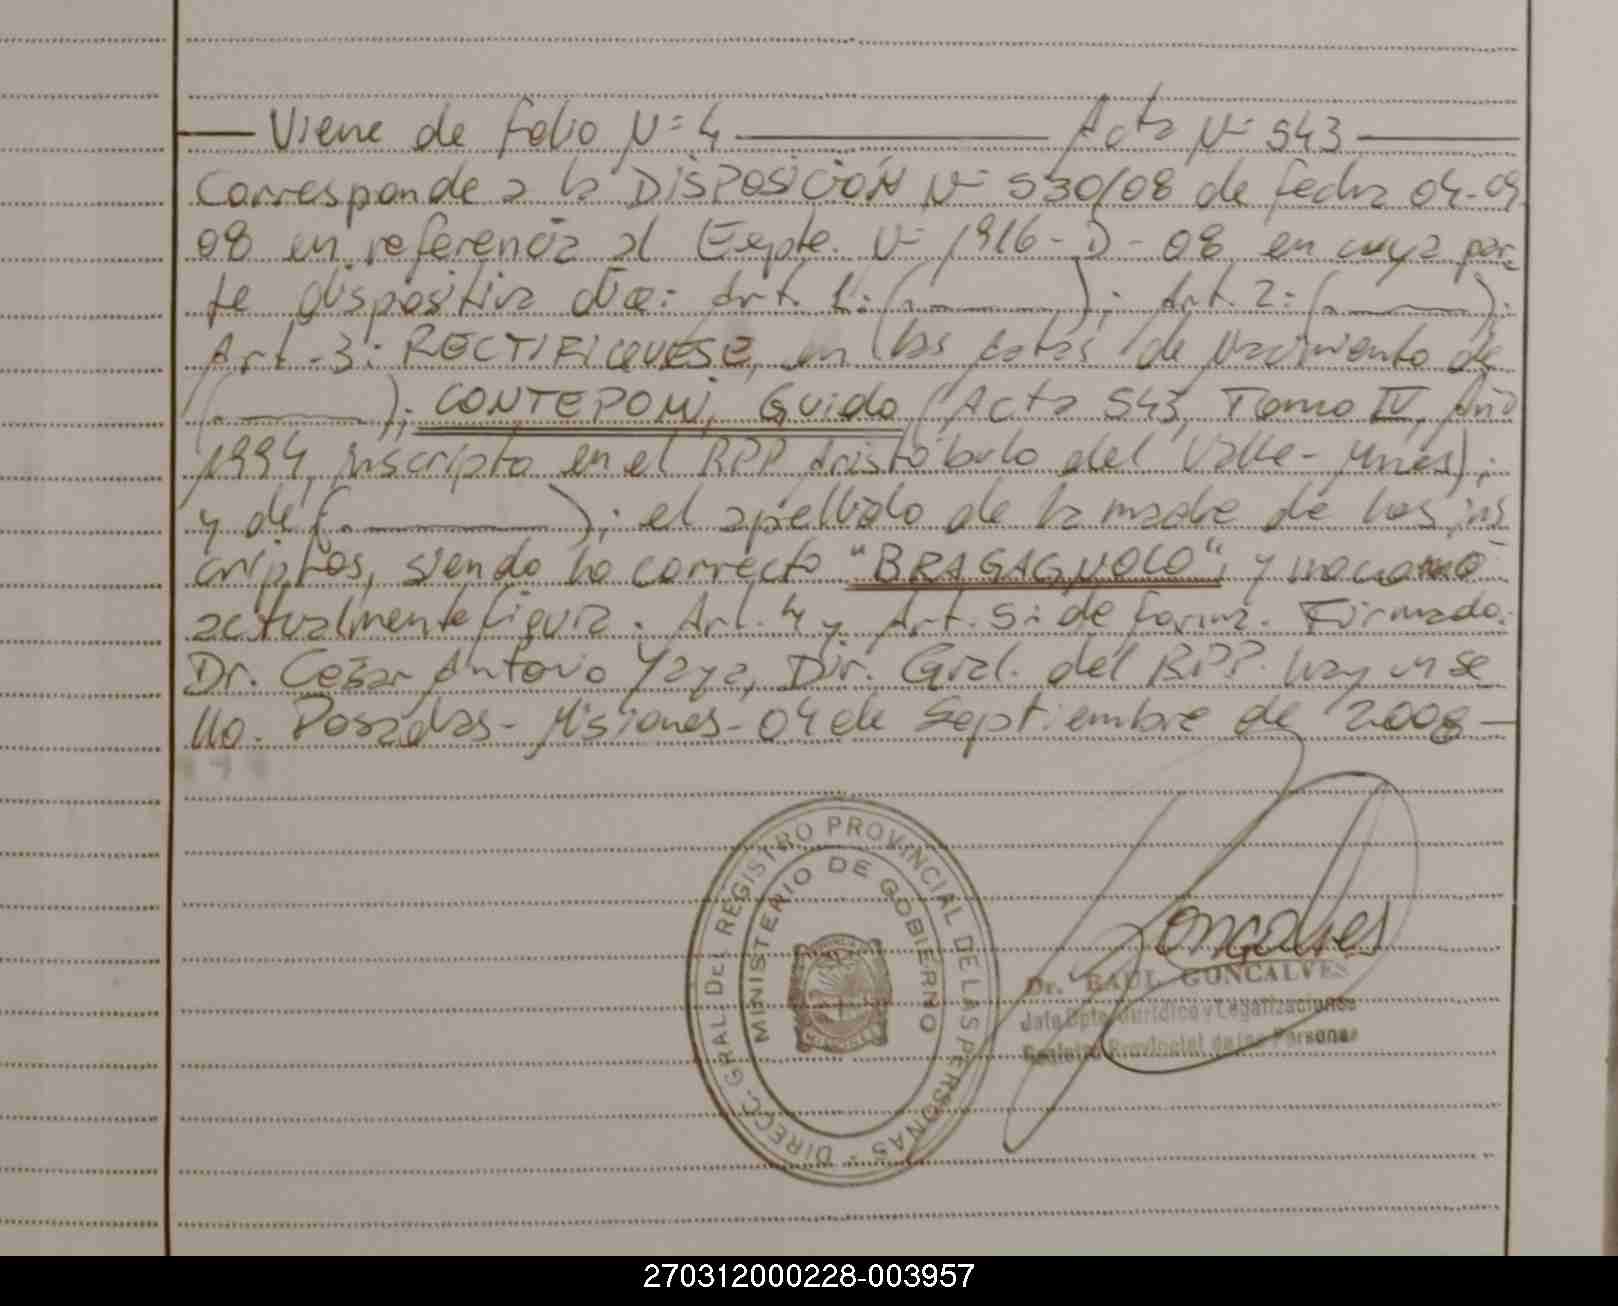 Viene de Folio Nº 4 Acta Nº 543
Corresponde a la DISPOSICIÓN Nº 530/08 de fecha 04-09-
08 en referencia al Expte. Nº 1916-D-08 en cuya par-
te dispositiva dice: Art. 1: ( ); Art. 2: ( );
Art. 3: RECTIFIQUESE, en las actas de Nacimiento de
( ); CONTEPOMI, Guido (Acta 543, Tomo IV, Año
1994, inscripto en el RPP Aristóbulo del Valle - Mnes);
y de ( ); el apellido de la madre de los ins
criptos, siendo lo correcto "BRAGAGNOLO", y no como
actualmente figura. Art. 4 y Art. 5: de forma. Firmado:
Dr. Cesar Antonio Yaya, Dir. Gral. del RPP. hay un se
llo. Posadas - Misiones - 04 de Septiembre de 2008
DIRECC. GRAL. DEL REGISTRO PROVINCIAL DE LAS PERSONAS
MINISTERIO DE GOBIERNO
MISIONES
Goncalves
Dr. RAUL GONCALVES
Jefe Dpto. Jurídico y Legalizaciones
Registro Provincial de las Personas
270312000228-003957